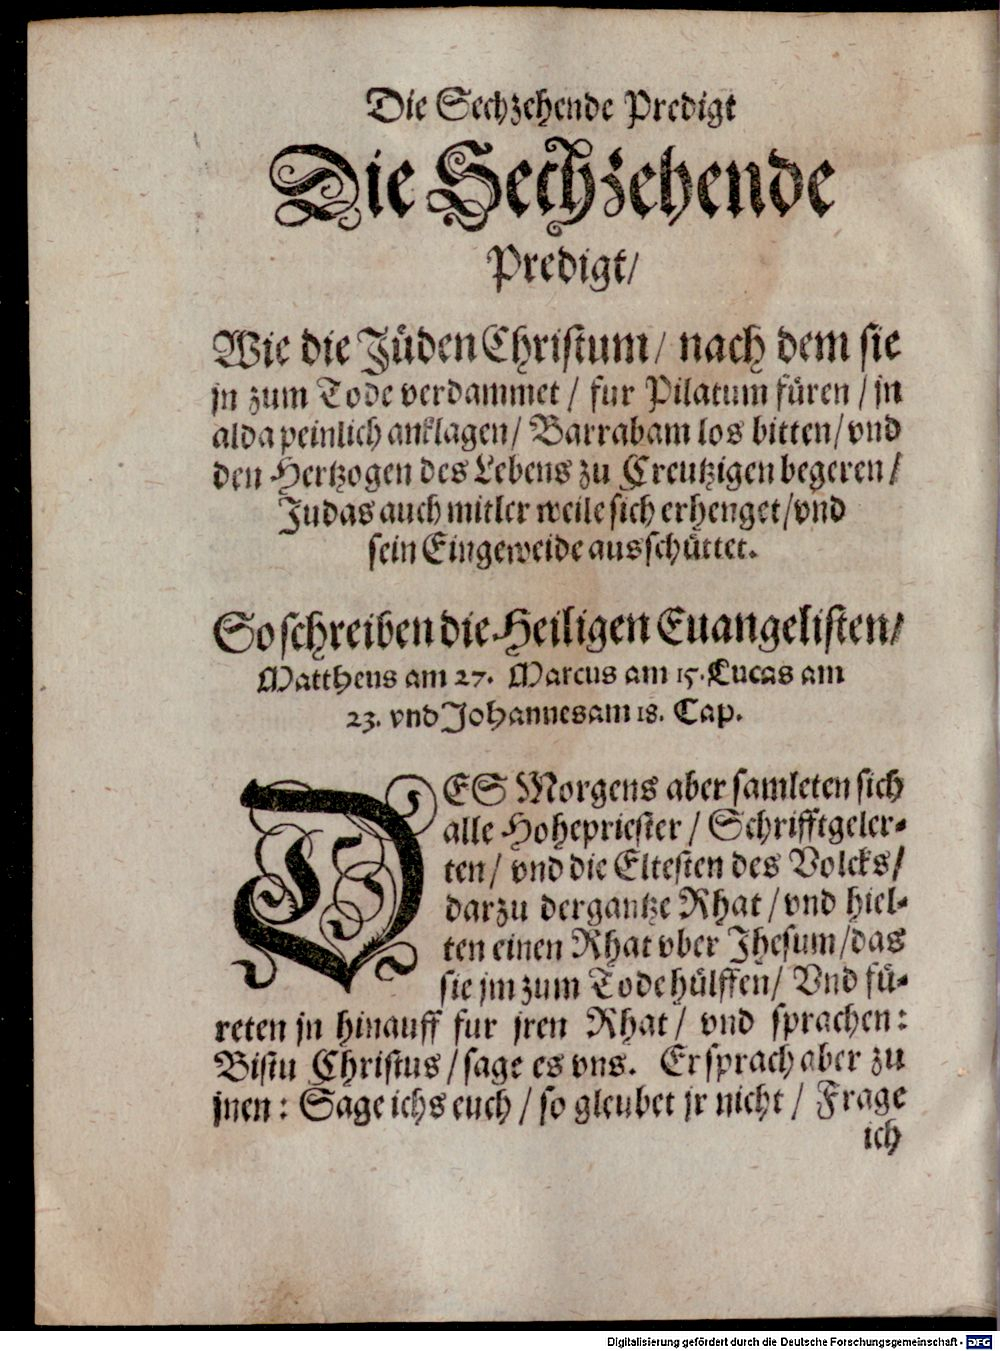 Die Sechzehende Predigt
Die Sechzehende
Predigt/
Wie die Jüden Christum/ nach dem sie
jn zum Tode verdammet / fur Pilatum füren / jn
alda peinlich anklagen/ Barrabam los bitten/ vnd
den Hertzogen des Lebens zu Creutzigen begeren/
Judas auch mitler weile sich erhenget/ vnd
sein Eingeweide ausschüttet.
So schreiben die Heiligen Euangelisten/
Mattheus am 27. Marcus am 15. Lucas am
23. vnd Johannes am 18. Cap.
DES Morgens aber samleten sich
alle Hohepriester / Schrifftgeler-
ten/ vnd die Eltesten des Volcks/
darzu der gantze Rhat / vnd hiel-
ten einen Rhat vber Jhesum/ das
sie jm zum Tode hülffen/ Vnd fü-
reten jn hinauff fur jren Rhat/ vnd sprachen:
Bistu Christus / sage es vns. Er sprach aber zu
jnen: Sage ichs euch / so gleubet jr nicht / Frage
ich
Digitalisierung gefördert durch die Deutsche Forschungsgemeinschaft - DFG